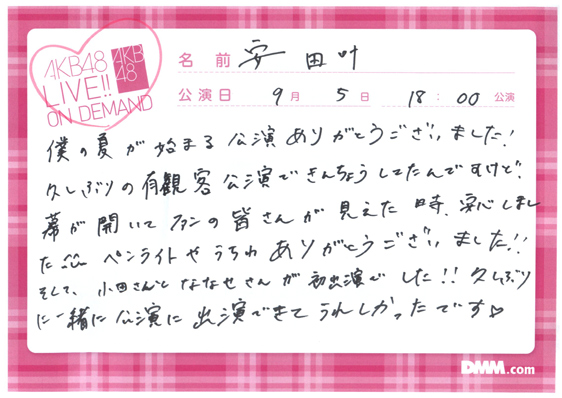 AKB48
LIVE!!
ON DEMAND
AKB
48
名前 安田叶
公演日 9月5日 18:00公演
僕の夏が始まる公演ありがとうございました!
久しぶりの有観客公演できんちょうしてたんですけど、
幕が開いてファンの皆さんが見えた時、安心しまし
た ペンライトやうちわありがとうございました!!
そして、小田さんとななせさんが初出演でした!!久しぶり
に一緒に公演に出演できてうれしかったです♡
DMM.com